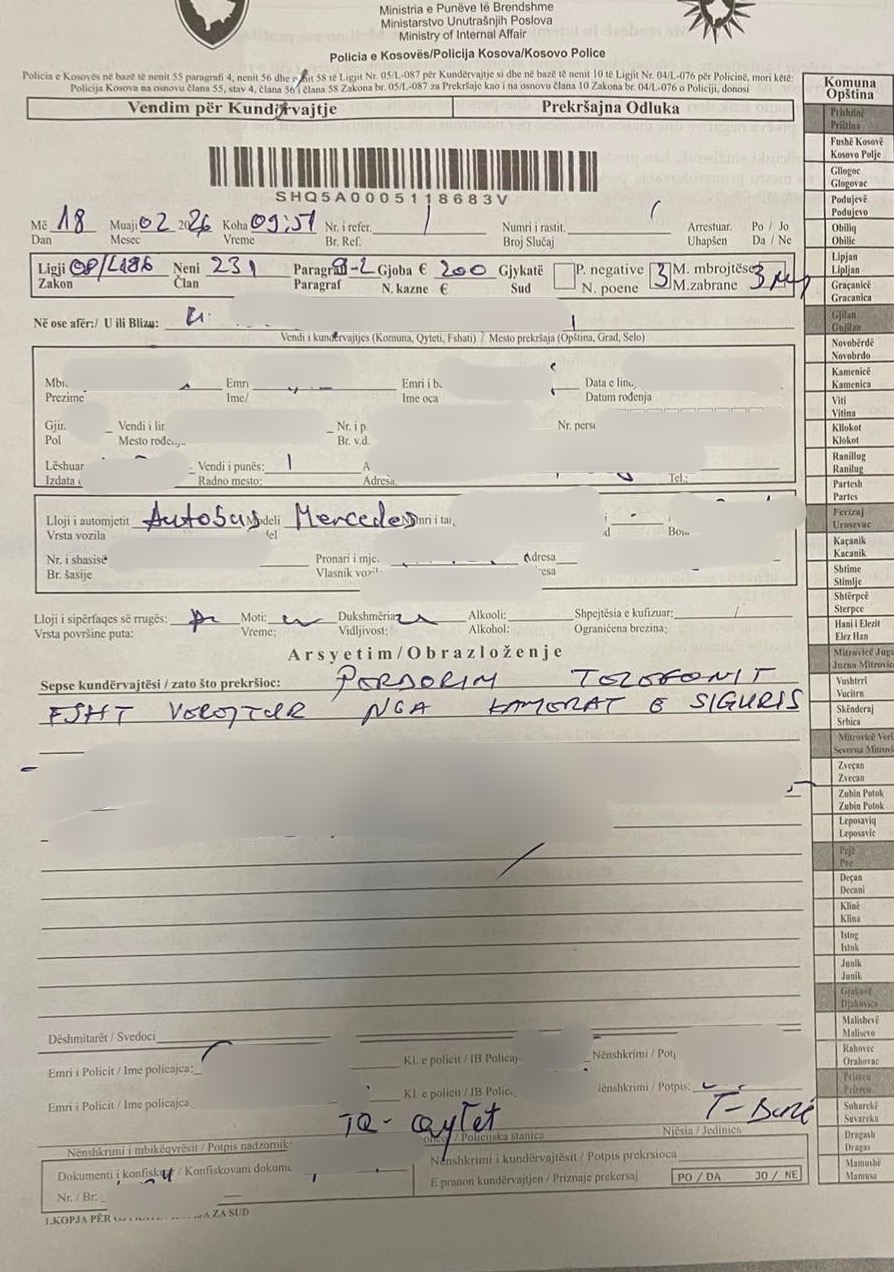 Ministria e Punëve të Brendshme
Ministarstvo Unutrašnjih Poslova
Ministry of Internal Affair
Policia e Kosovës/Policija Kosova/Kosovo Police
Policia e Kosovës në bazë të nenit 55 paragrafi 4, nenit 56 dhe nenit 58 të Ligjit Nr. 05/L-087 për Kundërvajtje si dhe në bazë të nenit 10 të Ligjit Nr. 04/L-076 për Policinë, mori këtë:
Policija Kosova na osnovu člana 55, stav 4, člana 56 i člana 58 Zakona br. 05/L-087 za Prekršaje kao i na osnovu člana 10 Zakona br. 04/L-076 o Policiji, donosi
Vendim për Kundërvajtje Prekršajna Odluka
SHQ5A0005118683V
Më 18 Muaji 02 2026 Koha 09:51 Nr. i refer. Numri i rastit. Arrestuar. Po / Jo
Dan Mesec Vreme Br. Ref. Broj Slučaj Uhapšen Da / Ne
Ligji 08/L186 Neni 231 Paragraf Gjoba € 200 Gjykatë P. negative 3 M. mbrojtëse 3
Zakon Član Paragraf N. kazne € Sud N. poene M.zabrane
Në ose afër:/ U ili Blizu:
Vendi i kundërvajtjes (Komuna, Qyteti, Fshati) / Mesto prekršaja (Opština, Grad, Selo)
Emri Emri i b Data e
Prezime Ime/ Ime oca Datum rođenja
Vendi i Nr. i p
Pol Mesto Br. v.d. Nr.
Lëshuar Vendi i punës:
Izdata Radno mesto: Adresa Tel.:
Lloji i automjetit Autobus Modeli Mercedes
Vrsta vozila
Nr. i shasisë Pronari i Adresa
Br. šasije Vlasnik
Lloji i sipërfaqes së rrugës: Moti: Dukshmëria Alkooli: Shpejtësia e kufizuar:
Vrsta površine puta: Vreme: Vidljivost: Alkohol: Ograničena brezina:
Arsyetim/Obrazloženje
Sepse kundërvajtësi / zato što prekršioc: PORDORIM TELOFONIT
ESHT VEREJTUR NGA KAMERAT E SIGURIS
Dëshmitarët / Svedoci
Emri i Policit / Ime policajca: Kl. e policit / IB Policaj
Nënshkrimi / Potp
Emri i Policit / Ime policajca Kl. e policit / IB Polic
Nënshkrimi / Potpis:
Nënshkrimi i mbikëqyrësit / Potpis nadzornik
Policijska stanica Njësia / Jedinica
Dokumenti i konfisk / Konfiskovani dokum
Nënshkrimi i kundërvajtësit / Potpis prekrsioca
Nr. / Br: E pranon kundërvajtjen / Priznaje prekersaj PO / DA JO / NE
1.KOPJA PËR ZA SUD
Komuna
Opština
Prishtinë
Priština
Fushë Kosovë
Kosovo Polje
Gllogoc
Glogovac
Podujevë
Podujevo
Obiliq
Obilic
Lipjan
Lipljan
Graçanicë
Gracanica
Gjilan
Gnjilan
Novobërdë
Novobrdo
Kamenicë
Kamenica
Viti
Vitina
Kllokot
Klokot
Ranillug
Ranilug
Partesh
Partes
Ferizaj
Urosevac
Kaçanik
Kacanik
Shtime
Stimlje
Shtërpcë
Sterpce
Hani i Elezit
Elez Han
Mitrovicë Jug
Juzna Mitrovic
Vushtrri
Vucitrn
Skënderaj
Srbica
Mitrovicë Veri
Severna Mitrovi
Zveçan
Zvecan
Zubin Potok
Zubin Potok
Leposaviq
Leposavic
Pejë
Pec
Deçan
Decani
Klinë
Klina
Istog
Istok
Junik
Junik
Gjakovë
Djakovica
Malishevë
Malisevo
Rahovec
Orahovac
Prizren
Prizren
Suharekë
Suvareka
Dragash
Dragas
Mamushë
Mamusa